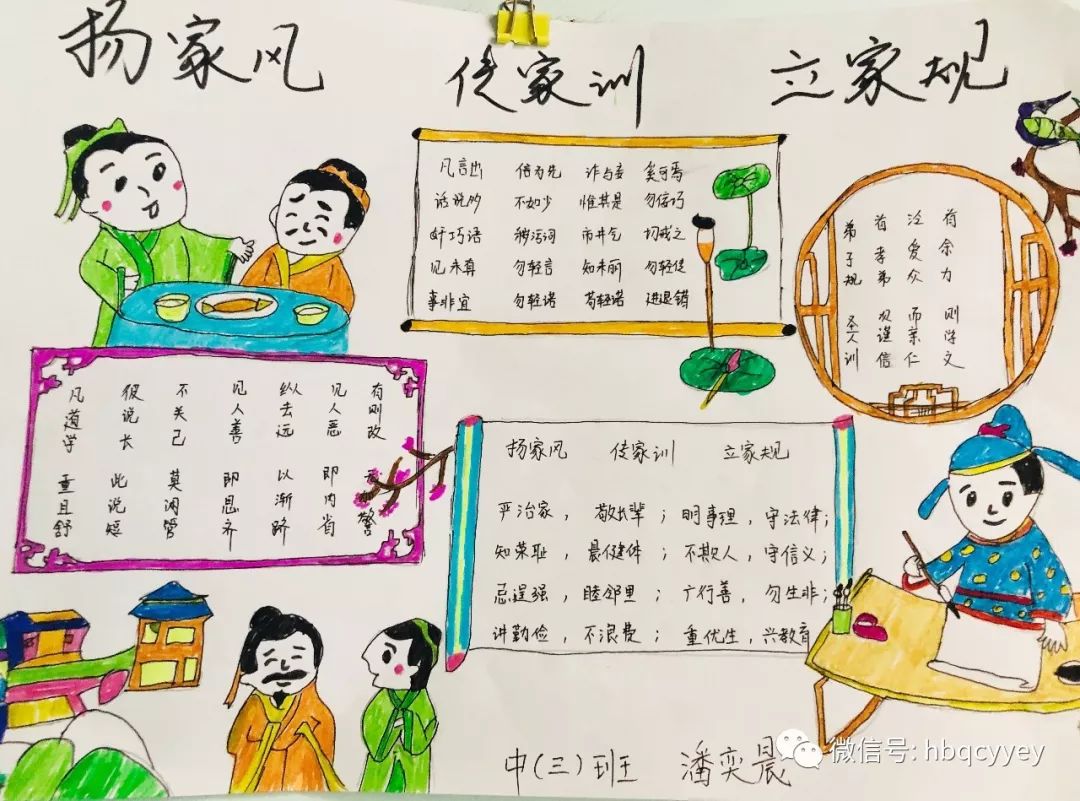 扬家风 传家训 立家规
凡言出 信为先 诈与妄 奚可焉
话说多 不如少 惟其是 勿佞巧
奸巧语 秽污词 市井气 切戒之
见未真 勿轻言 知未 勿轻传
事非宜 勿轻诺 苟轻诺 进退错
弟子规 圣人训
有孝弟 次谨信
泛爱众 而亲仁
有余力 则学文
凡道学 重且舒
彼说长 此说短
不关己 莫闲管
见人善 即思齐
纵去远 以渐跻
见人恶 即内省
有则改 无加警
扬家风 传家训 立家规
严治家，敬长辈；明事理，守法律；
知荣耻，晨健体；不欺人，守信义；
忌逞强，睦邻里；广行善，勿生非；
讲勤俭，不浪费；重优生，兴教育
中(三)班 潘奕晨
微信号: hbqcyyey